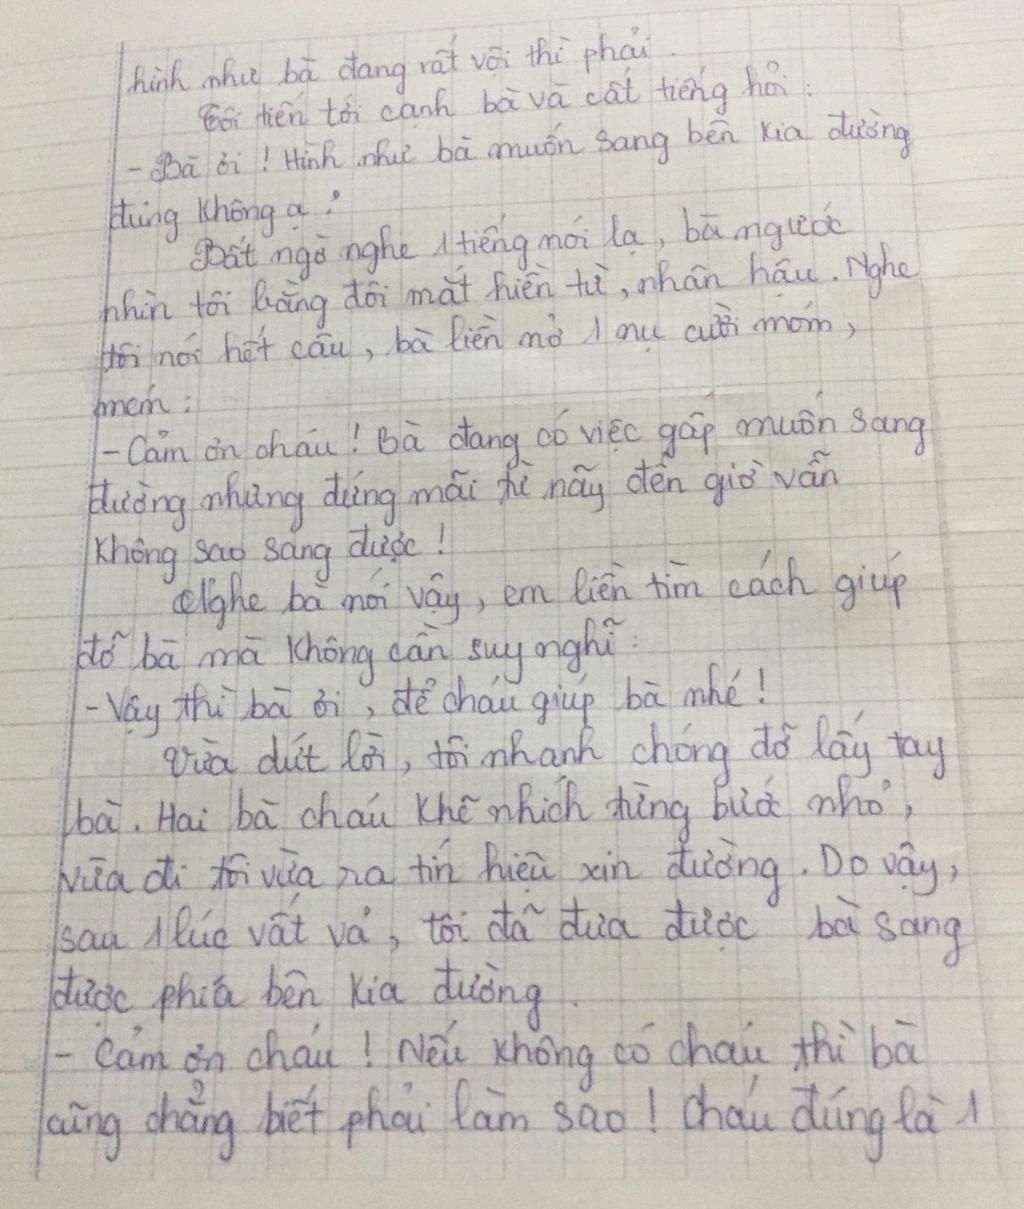 hình như bà đang rất vội thì phải.
Tôi tiến tới cạnh bà và cất tiếng hỏi:
- Bà ơi! Hình như bà muốn sang bên kia đường
đúng không ạ?
Bất ngờ nghe 1 tiếng nói lạ, bà ngước
nhìn tôi bằng đôi mắt hiền từ, nhân hậu. Nghe
tôi nói hết câu, bà liền nở 1 nụ cười móm,
mém:
- Cảm ơn cháu! Bà đang có việc gấp muốn sang
đường nhưng đứng mãi từ nãy đến giờ vẫn
không sao sang được!
Nghe bà nói vậy, em liền tìm cách giúp
đỡ bà mà không cần suy nghĩ:
- Vậy thì bà ơi, để cháu giúp bà nhé!
Vừa dứt lời, tôi nhanh chóng đỡ lấy tay
bà. Hai bà cháu khẽ nhích từng bước nhỏ,
vừa đi tôi vừa ra tín hiệu xin đường. Do vậy,
sau 1 lúc vất vả, tôi đã đưa được bà sang
được phía bên kia đường.
- Cảm ơn cháu! Nếu không có cháu thì bà
cũng chẳng biết phải làm sao! Cháu đúng là 1